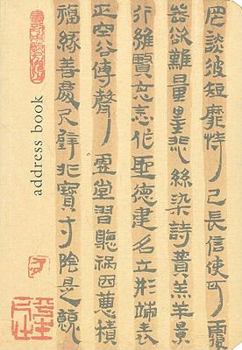 罔談彼短靡恃己長信使可覆
器欲難量墨悲絲染詩讚羔羊景
行維賢克念作聖德建名立形端表
正空谷傳聲虛堂習聽禍因惡積
福緣善慶尺璧非寶寸陰是競
address book